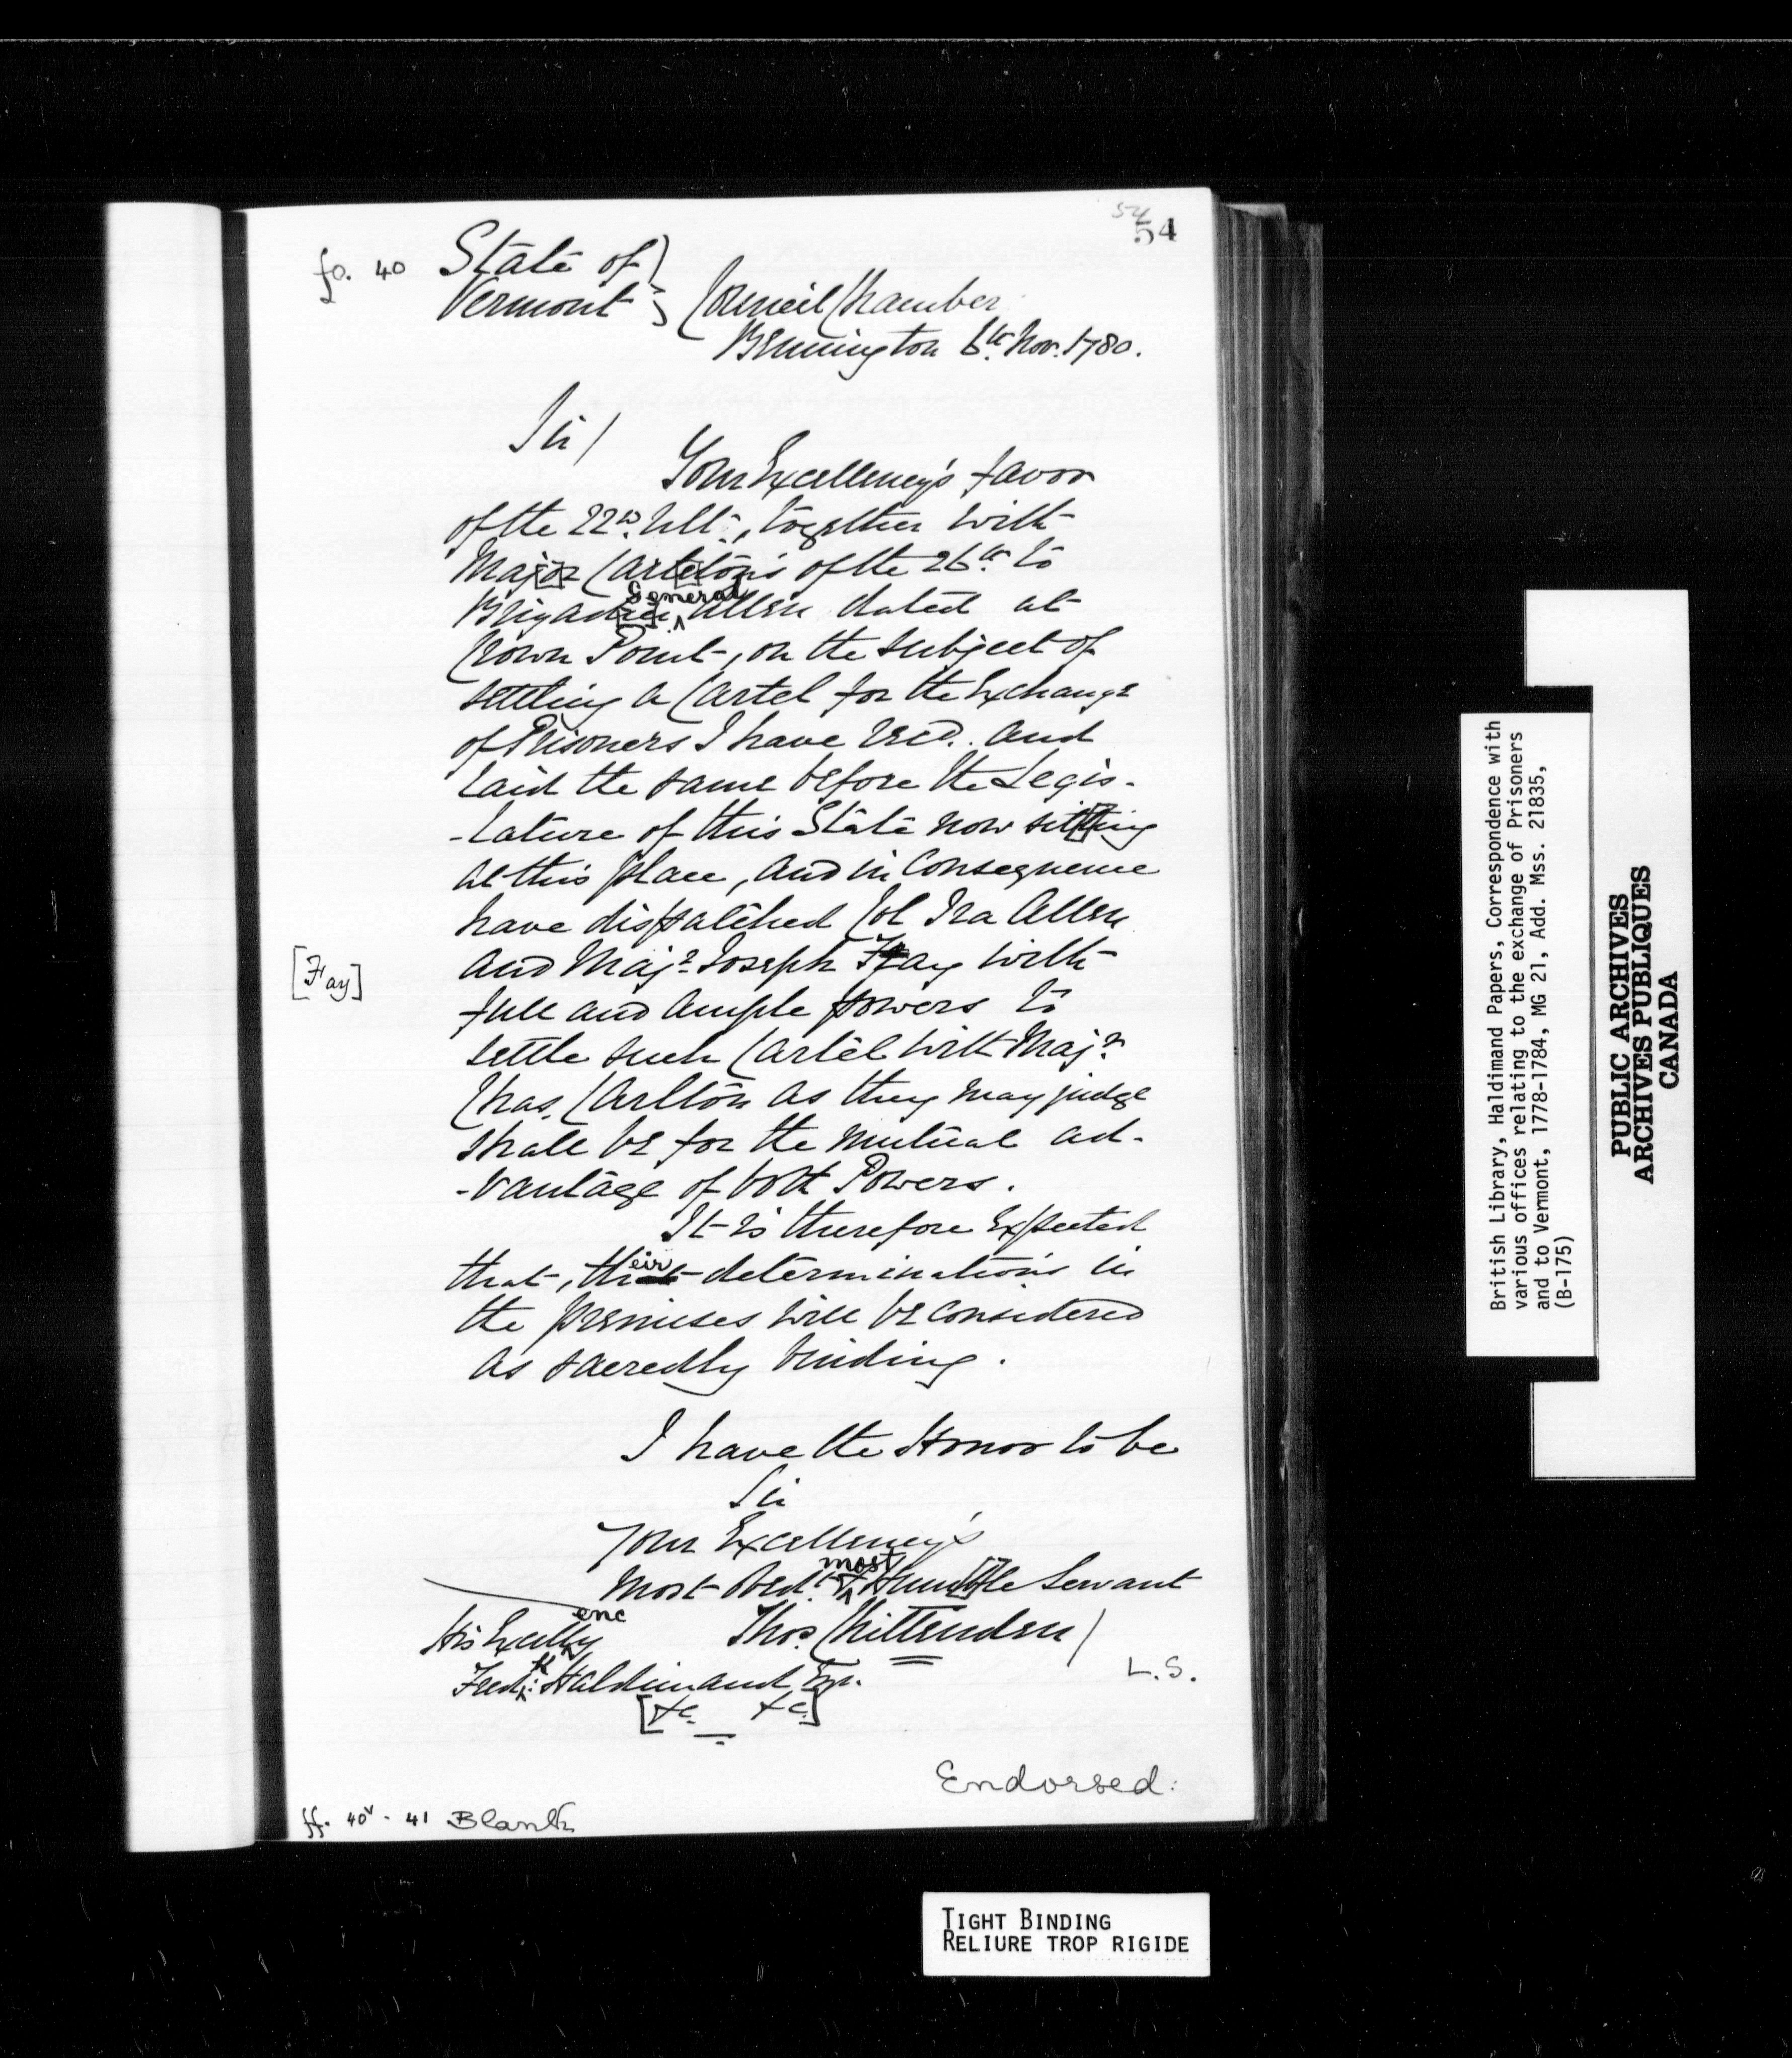 54
54
fo. 40 State of }
Vermont } Council Chamber
Bennington 6th. Nov. 1780.
Sir/
Your Excellency's favor
of the 22nd. Ult., together with
Maj[o]r Carl[e]ton's of the 26th. to
Brigad[ier] General Allen dated at
Crown Point, on the subject of
settling a Cartel for the Exchange
of Prisoners I have recd. and
laid the same before the Legis-
-lature of this State now sit[t]ing
at this place, and in Consequence
have dispatched Col Ira Allen
[Fay] and Majr. Joseph Fay with
full and ample powers to
settle such Cartel with Majr.
Chas. Carlton as they may judge
shall be for the mutual ad-
-vantage of both Powers.
It is therefore Expected
that, their determinations in
the premises will be considered
as sacredly binding.
I have the Honor to be
Sir
Your Excellency's
Most Obedt. & most Hum[b]le Servant
His Excellency Thos. Chittenden/
Fredk: Haldimand Esqr. L.S.
[&c. &c.]
Endorsed:
ff. 40v - 41 Blank
British Library, Haldimand Papers, Correspondence with
various offices relating to the exchange of Prisoners
and to Vermont, 1778-1784, MG 21, Add. Mss. 21835,
(B-175)
PUBLIC ARCHIVES
ARCHIVES PUBLIQUES
CANADA
TIGHT BINDING
RELIURE TROP RIGIDE